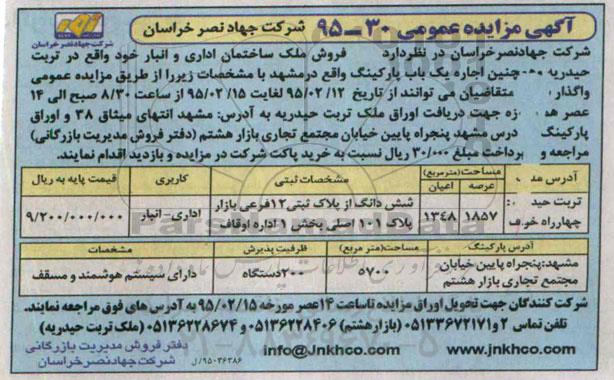 آگهی مزایده عمومی ۳۰-۹۵ شرکت جهاد نصر خراسان
شرکت جهاد نصر خراسان
شرکت جهادنصرخراسان در نظردارد فروش ملک ساختمان اداری و انبار خود واقع در تربت
حیدریه چنین اجاره یک باب پارکینگ واقع درمشهد با مشخصات زیررا از طریق مزایده عمومی
واگذار متقاضیان می توانند از تاریخ ۹۵/۰۲/۱۲ لغایت ۹۵/۰۲/۱۵ از ساعت ۸/۳۰ صبح الی ۱۴
عصر جهت دریافت اوراق ملک تربت حیدریه به آدرس: مشهد انتهای میثاق ۳۸ و اوراق
پارکینگ درس مشهد پنجراه پایین خیابان مجتمع تجاری بازار هشتم (دفتر فروش مدیریت بازرگانی)
مراجعه و برداخت مبلغ ۳۰/۰۰۰ ریال نسبت به خرید پاکت شرکت در مزایده و بازدید اقدام نمایند.
آدرس مساحت(مترمربع) مشخصات ثبتی کاربری قیمت پایه به ریال
عرصه اعیان
تربت حید چهارراه ۱۸۵۷ ۱۳۴۸ شش دانگ از پلاک ثبتی ۱۲فرعی بازار اداری-انبار ۹/۲۰۰/۰۰۰/۰۰۰
پلاک ۱۱۰ اصلی بخش ۱ اداره اوقاف
آدرس پارکینگ مساحت(متر مربع) ظرفیت پذیرش مشخصات
مشهد:پنجراه پایین خیابان ۵۷۰۰ ۲۰۰دستگاه دارای سیستم هوشمند و مسقف
مجتمع تجاری بازار هشتم
شرکت کنندگان جهت تحویل اوراق مزایده تاساعت ۱۴عصر مورخه ۹۵/۰۲/۱۵ به آدرس های فوق مراجعه نمایند.
تلفن تماس ۲و۰۵۱۳۳۶۷۲۱۷۱ (بازار هشتم) ۰۵۱۳۶۲۲۸۴۰۶ و ۰۵۱۳۶۲۲۸۶۷۴ (ملک تربت حیدریه)
www.jnkhco.com info@Jnkhco.com
دفتر فروش مدیریت بازرگانی
شرکت جهادنصرخراسان
۹۵۰۳۶۳۸۶/ل